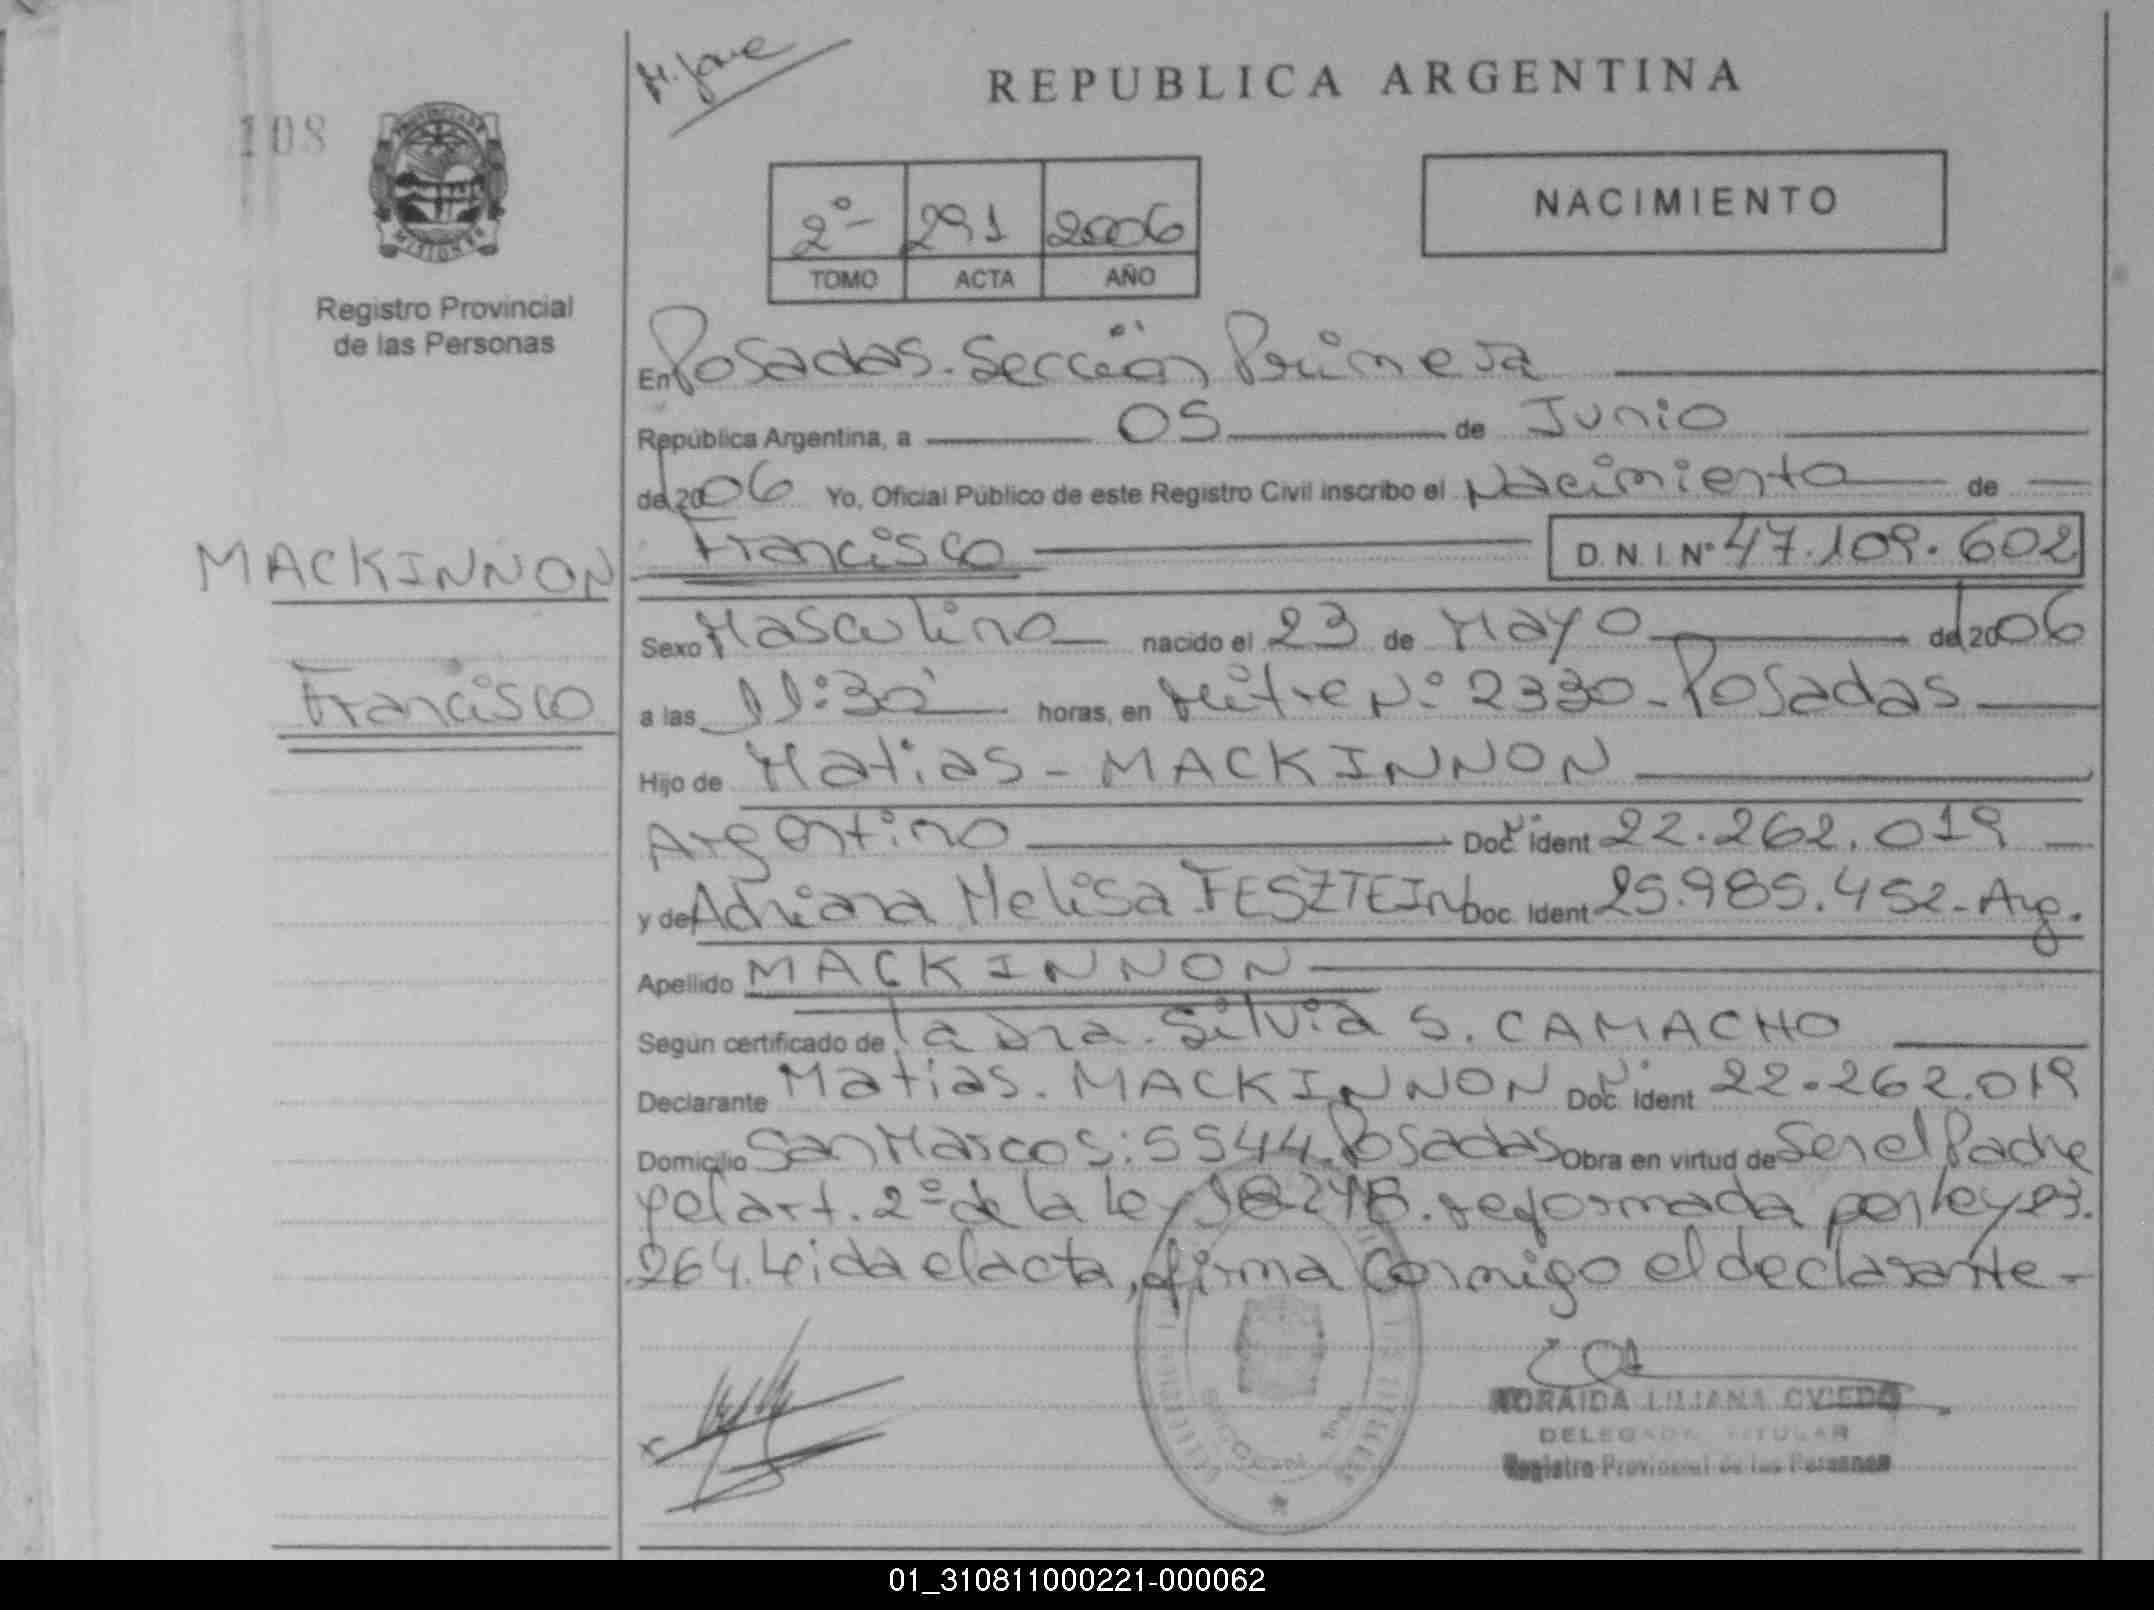 M. Jane
REPUBLICA ARGENTINA
108
PROVINCIA DE
MISIONES
Registro Provincial
de las Personas
2º 291 2006
TOMO ACTA AÑO
NACIMIENTO
En Posadas. Sección Primera
República Argentina, a 05 de Junio
del 2006 Yo, Oficial Público de este Registro Civil inscribo el Nacimiento de
MACKINNON
Francisco
Francisco D.N.I Nº 47.109.602
Sexo Masculino nacido el 23 de Mayo del 2006
a las 11:30 horas, en Mitre Nº 2330 - Posadas
Hijo de Matias - MACKINNON
Argentino Doc. ident 22.262.019
y de Adriana Melisa FESZTEIN Doc. Ident 25.985.452 - Arg.
Apellido MACKINNON
Según certificado de la Dra. Silvia S. CAMACHO
Declarante Matias. MACKINNON Doc. ident 22.262.019
Domicilio San Marcos: 5544. Posadas Obra en virtud de Ser el Padre
y el art. 2º de la Ley 18248. reformada por ley 23.
264. Leida el acta, firma conmigo el declarante -
x
NORAIDA LILIANA OVIEDO
DELEGADA TITULAR
Registro Provincial de las Personas
01_310811000221-000062